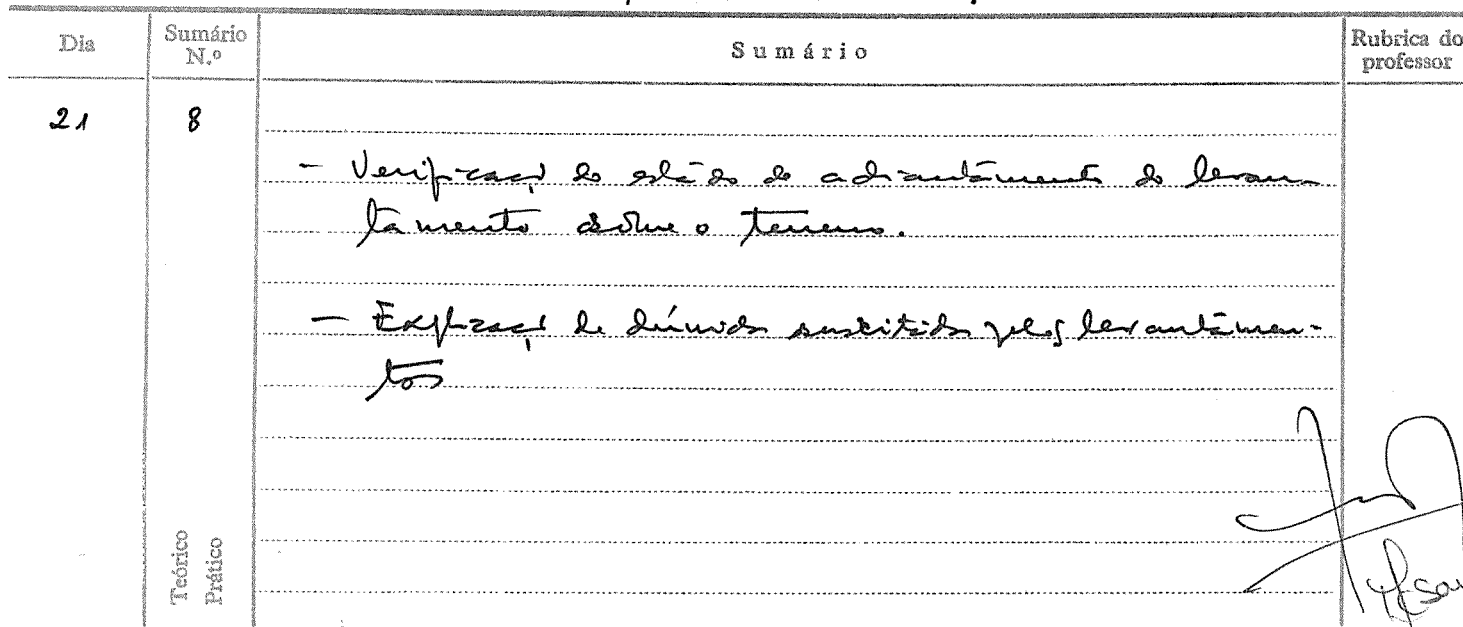 Dia
Sumário
N.º
Sumário
Rubrica do
professor
21
8
- Verificaçã do estado de adiantamento do levan
tamento sobre o terreno.
- Explicaçã de dúvidas suscitadas pelos levantamen-
tos
Teórico
Prático